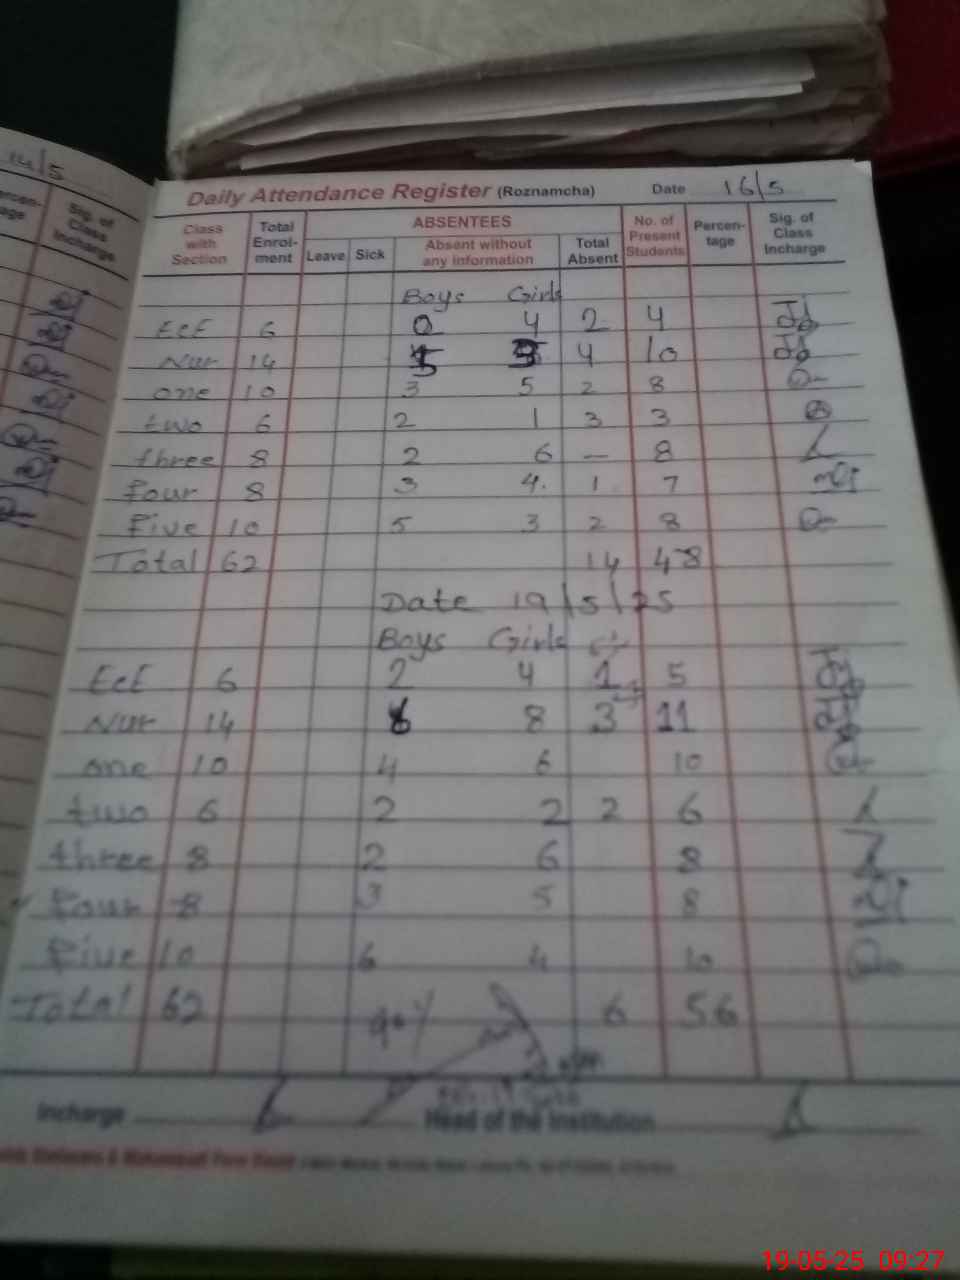 14/5
Sig. of
Class
Incharge
Daily Attendance Register (Roznamcha) Date 16/5
Class with Section Total Enrol-ment ABSENTEES No. of Present Students Percen-tage Sig. of Class Incharge
Leave Sick Absent without any information Total Absent
Boys Girls
EcE 6 0 4 2 4
Nur 14 4 10
one 10 3 5 2 8
two 6 2 1 3 3
three 8 2 6 — 8
four 8 3 4. 1 7
five 10 5 3 2 8
Total 62 14 48
Date 19/5/25
Boys Girls
EcE 6 2 4 1 5
Nur 14 6 8 3 11
one 10 4 6 10
two 6 2 2 2 6
three 8 2 6 8
four 8 3 5 8
five 10 6 4 10
Total 62 6 56
90%
Incharge Head of the Institution
19-05-25 09:27